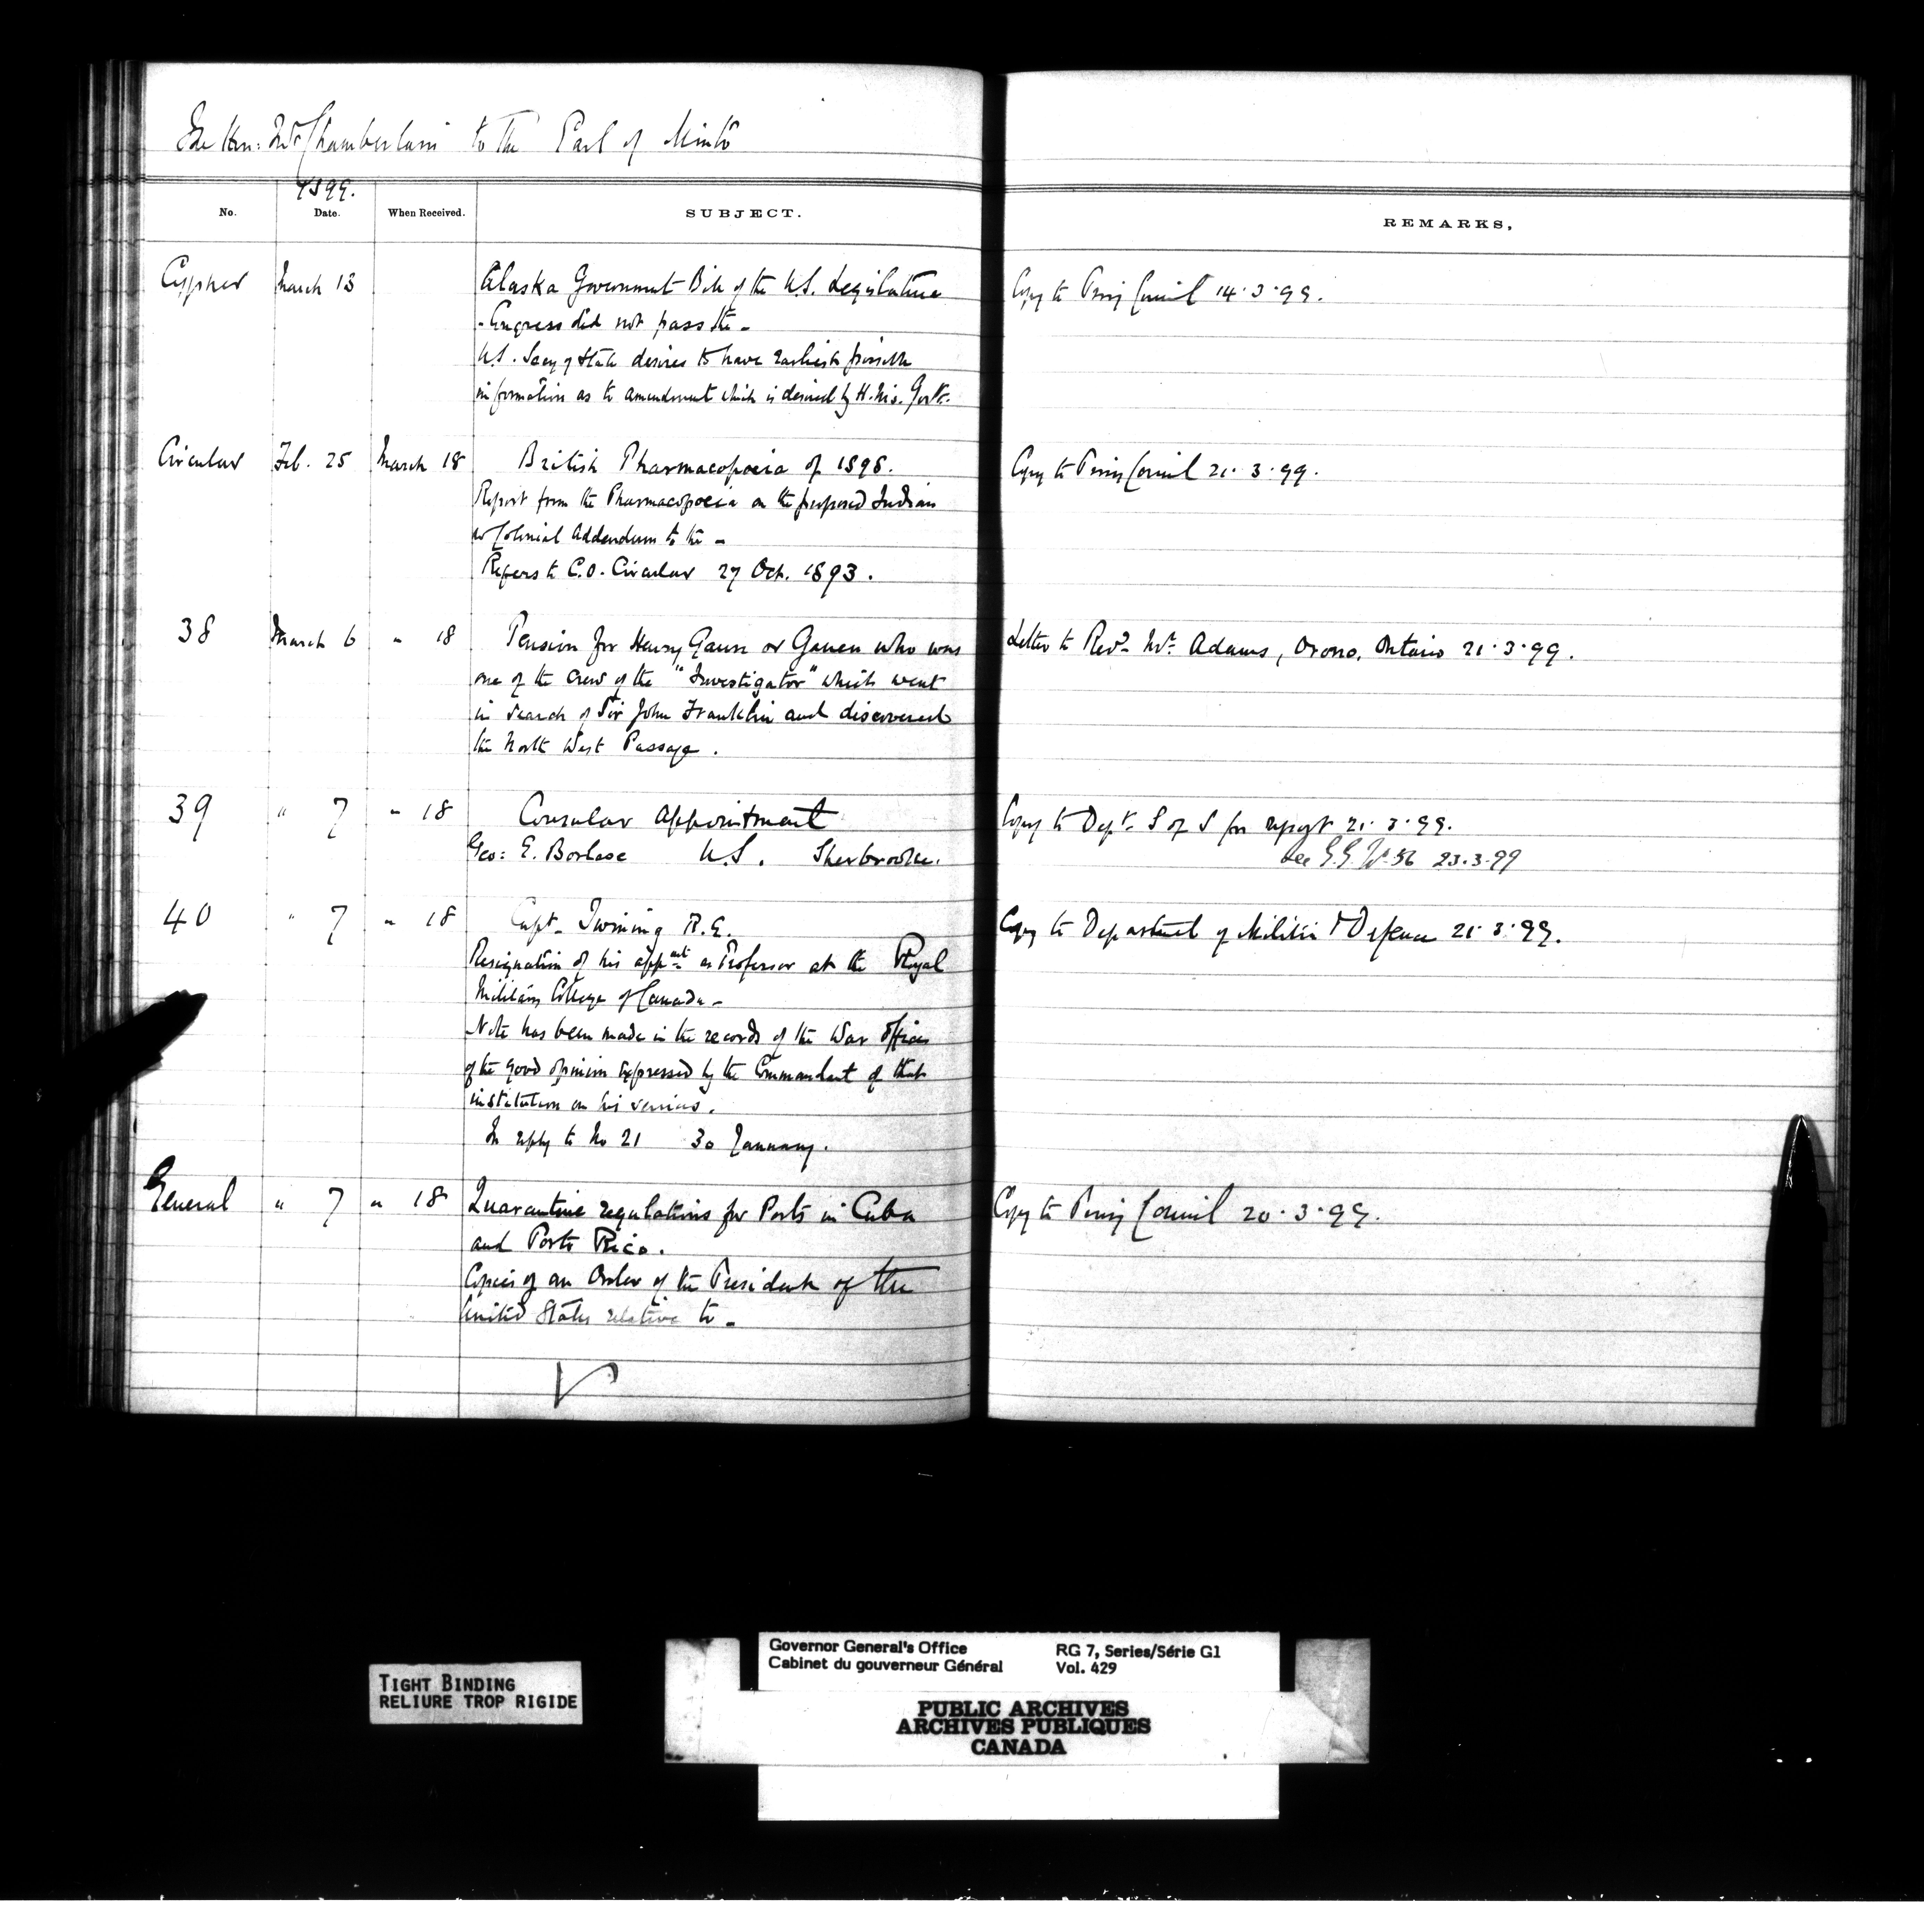 The Hon: Mr Chamberlain to the Earl of Minto
1899.
No. Date. When Received. SUBJECT. REMARKS,
Cypher March 13 Alaska Government Bill of the U.S. Legislature Copy to Privy Council 14.3.99.
- Congress did not pass the -
U.S. Secy of State desires to have earliest possible
information as to amendment which is desired by H. M's. Govt.
Circular Feb. 25 March 18 British Pharmacopoeia of 1898. Copy to Privy Council 21.3.99.
Report from the Pharmacopoeia on the proposed Indian
Colonial Addendum to the -
Refers to C.O. Circular 27 Oct. 1893.
38 March 6 " 18 Pension for Henry Gauen or Gauen who was Letter to Revd. Mr. Adams, Orono, Ontario 21.3.99.
one of the crew of the "Investigator" which went
in search of Sir John Franklin and discovered
the North West Passage.
39 " 7 " 18 Consular appointment Copy to Dept. S of S for report 21.3.99.
Geo: E. Borlase U.S. Sherbrooke. See G.G. No. 56 23.3.99
40 " 7 " 18 Capt. Twining R.E. Copy to Department of Militia & Defence 21.3.99.
Resignation of his appmt. as Professor at the Royal
Military College of Canada -
Note has been made in the records of the War Office
of the good opinion expressed by the Commandant of that
institution on his services.
In reply to No 21 30 January.
General " 7 " 18 Quarantine regulations for Ports in Cuba Copy to Privy Council 20.3.99.
and Porto Rico.
Copies of an Order of the President of the
United States relative to -
TIGHT BINDING
RELIURE TROP RIGIDE
Governor General's Office RG 7, Series/Série G1
Cabinet du gouverneur Général Vol. 429
PUBLIC ARCHIVES
ARCHIVES PUBLIQUES
CANADA